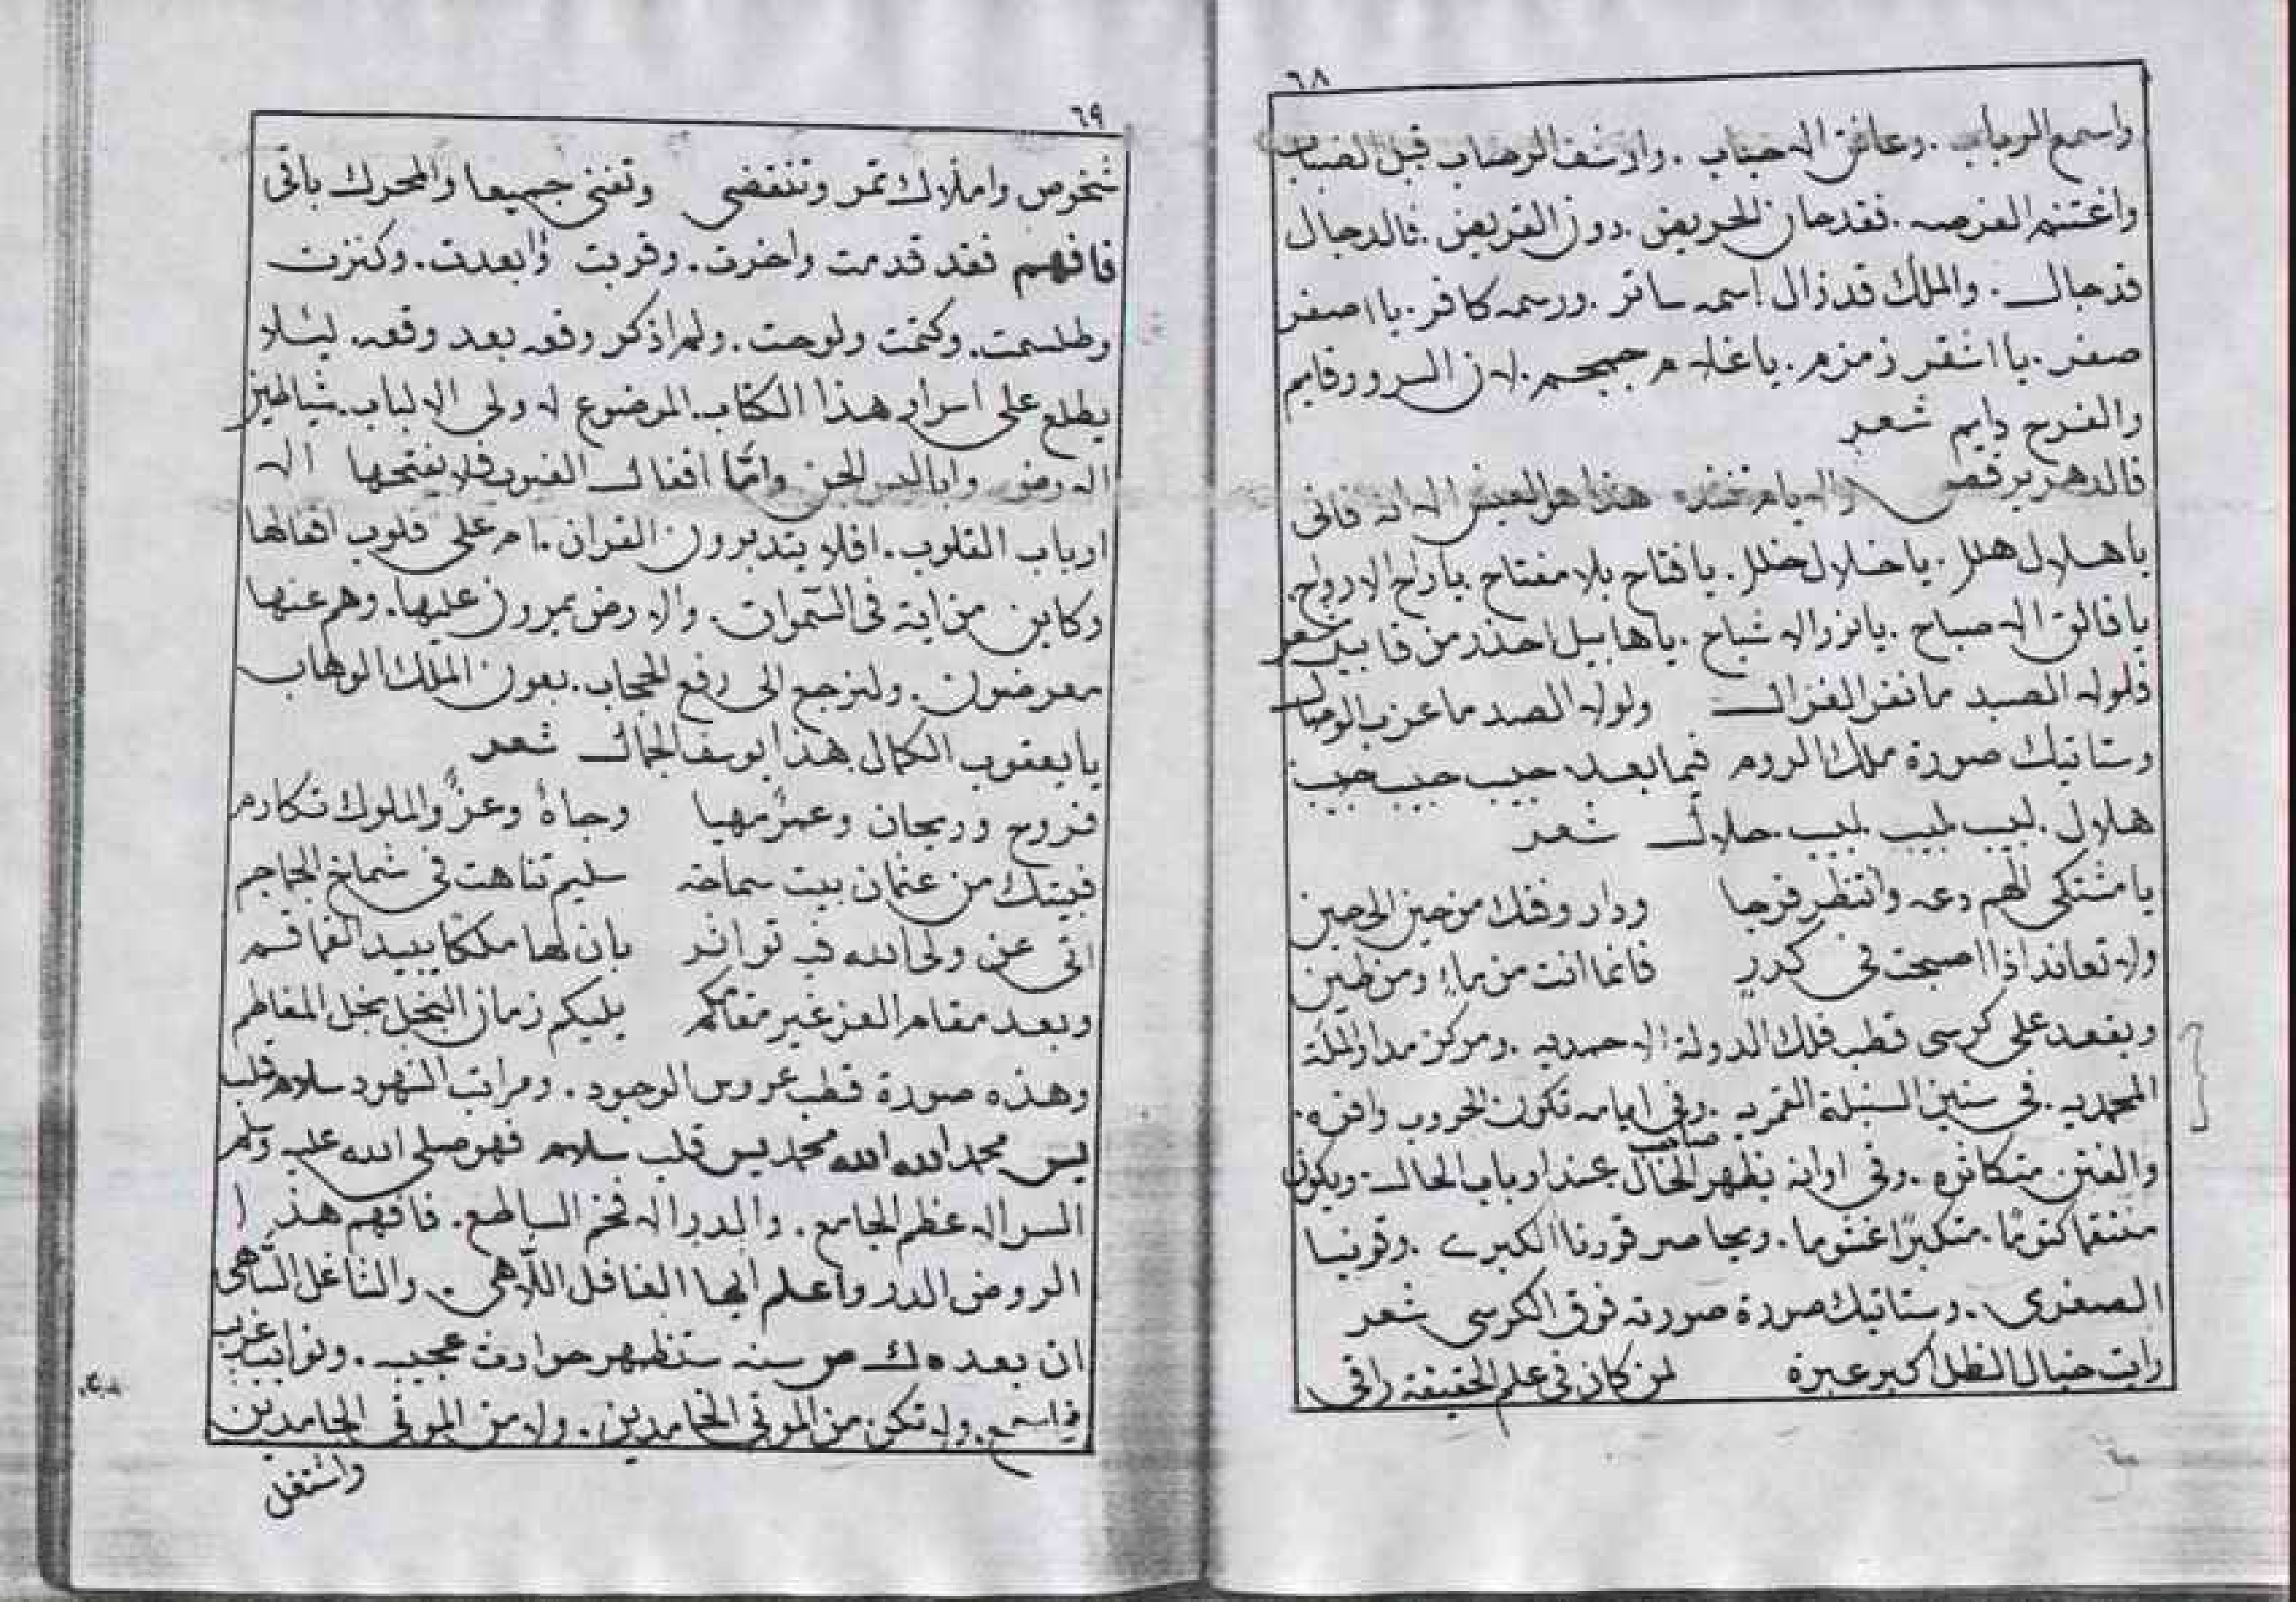 ٦٨
واسمع الرباب . وعانق الاحباب . وارشف الرضاب قبل
واغتنم الفرصه . فقد حان الحريض . دون القريض . فالدجال
قد جال . والملك قد زال اسمه ساتر . ورسمه كافر . يا اصفر
صفر . يا اشقر زمزم . يا غلام جمجم . لان السرور قايم
والفرح دايم شعر
فالدهر يرقص والايام تنشده هذا هو العيش الا انه فانى
يا هلال هلل . يا خلال خلل . يا فتاح بلا مفتاح . يا راح الارواح .
يا فالق الاصباح . يا نور الاشباح . يا هابيل احذر من قابيل شعر
فلولا الصيد ما نفر الغزال ولولا الصد ما عزب الوصال
وستاتيك صورة ملك الروم فيما بعد حبيب حبيب حبيب
هلال . لبيب لبيب لبيب . حلال شعر
يا مشتكى الهم دعه وانتظر فرجا ودار وقتك من حين الى حين
ولا تعاند اذا اصبحت فى كدر فانما انت من ماء ومن طين
ويقعد على كرسى قطب فلك الدولة الاحمديه . ومركز مدار الملة
المحمديه . فى سنين السنبلة القمريه . وفى ايامه تكون الحروب وافره .
والفتن متكاثره . وفى اوانه يظهر صاحب الخال عند ارباب الحال . ويكون
منتقما كتوما . متكبرا غشوما . ويحاصر قرونا الكبرى . وقرونيا
الصغرى . وستاتيك صورة صورته فوق الكرسى شعر
رايت خيال الظل اكبر عبرة لمن كان فى علم الحقيقة راقى
٦٩
شخوص واملاك تمر وتنقضى وتفنى جميعا والمحرك باقى
فافهم فقد قدمت واخرت . وقربت وابعدت . وكنزت
وطلسمت . وكتمت ولوحت . ولم اذكر وقعه بعد وقعه . ليلا
يطلع على اسرار هذا الكتاب . الموضوع لاولى الالباب . شياطين
الارض الجن واما اقفال الغيوب فلا يفتحها الا
ارباب القلوب . افلا يتدبرون القران . ام على قلوب اقفالها
وكاين من اية فى السموات . والارض يمرون عليها . وهم عنها
معرضون . ولنرجع الى رفع الحجاب . بعون الملك الوهاب
يا يعقوب الكمال هذا يوسف الجمال شعر
فروح وريحان وعمر مهيا وجاه وعز والملوك تكارم
فبيتك من عثمان بيت سماحة سليم تناهت فى شمايخ الجماجم
اتى عن ولى الله فى تواتر بان لها ملكا يبيد القماقم
وبعد مقام العز غير مقامكم يليكم زمان البخل بخل المطاعم
وهذه صورة قطب عروس الوجود . ومراتب الشهود سلام قلب
يس محمد الله الله محمد يس قلب سلام فهو صلى الله عليه وسلم
السر الاعظم الجامع . والبدر الافخم الساطع . فافهم هذا
الروض الدر واعلم ايها الغافل اللاهى . والشاغل الساهى
ان بعد ه ك ص سنه ستظهر حوادث عجيبه . ونوايب غريبه
فاسمع . ولا تكن من الموتى الخامدين . ولا من الموتى الجامدين
واشتغل